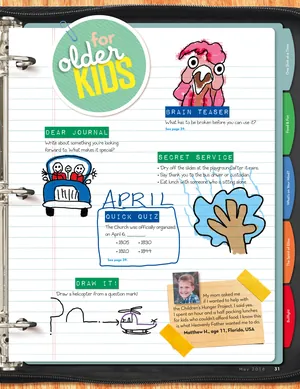 for
older
KIDS
BRAIN TEASER
What has to be broken before you can use it?
See page 39.
DEAR JOURNAL
Write about something you're looking
forward to. What makes it special?
SECRET SERVICE
• Dry off the slides at the playground after it rains.
• Say thank you to the bus driver or custodian.
• Eat lunch with someone who is sitting alone.
APRIL
QUICK QUIZ
The Church was officially organized
on April 6, ______.
•1805 •1830
•1820 •1844
See page 39.
DRAW IT!
Draw a helicopter from a question mark!
My mom asked me
if I wanted to help with
the Children's Hunger Project. I said yes.
I spent an hour and a half packing lunches
for kids who couldn't afford food. I know this
is what Heavenly Father wanted me to do.
Matthew H., age 11, Florida, USA
31